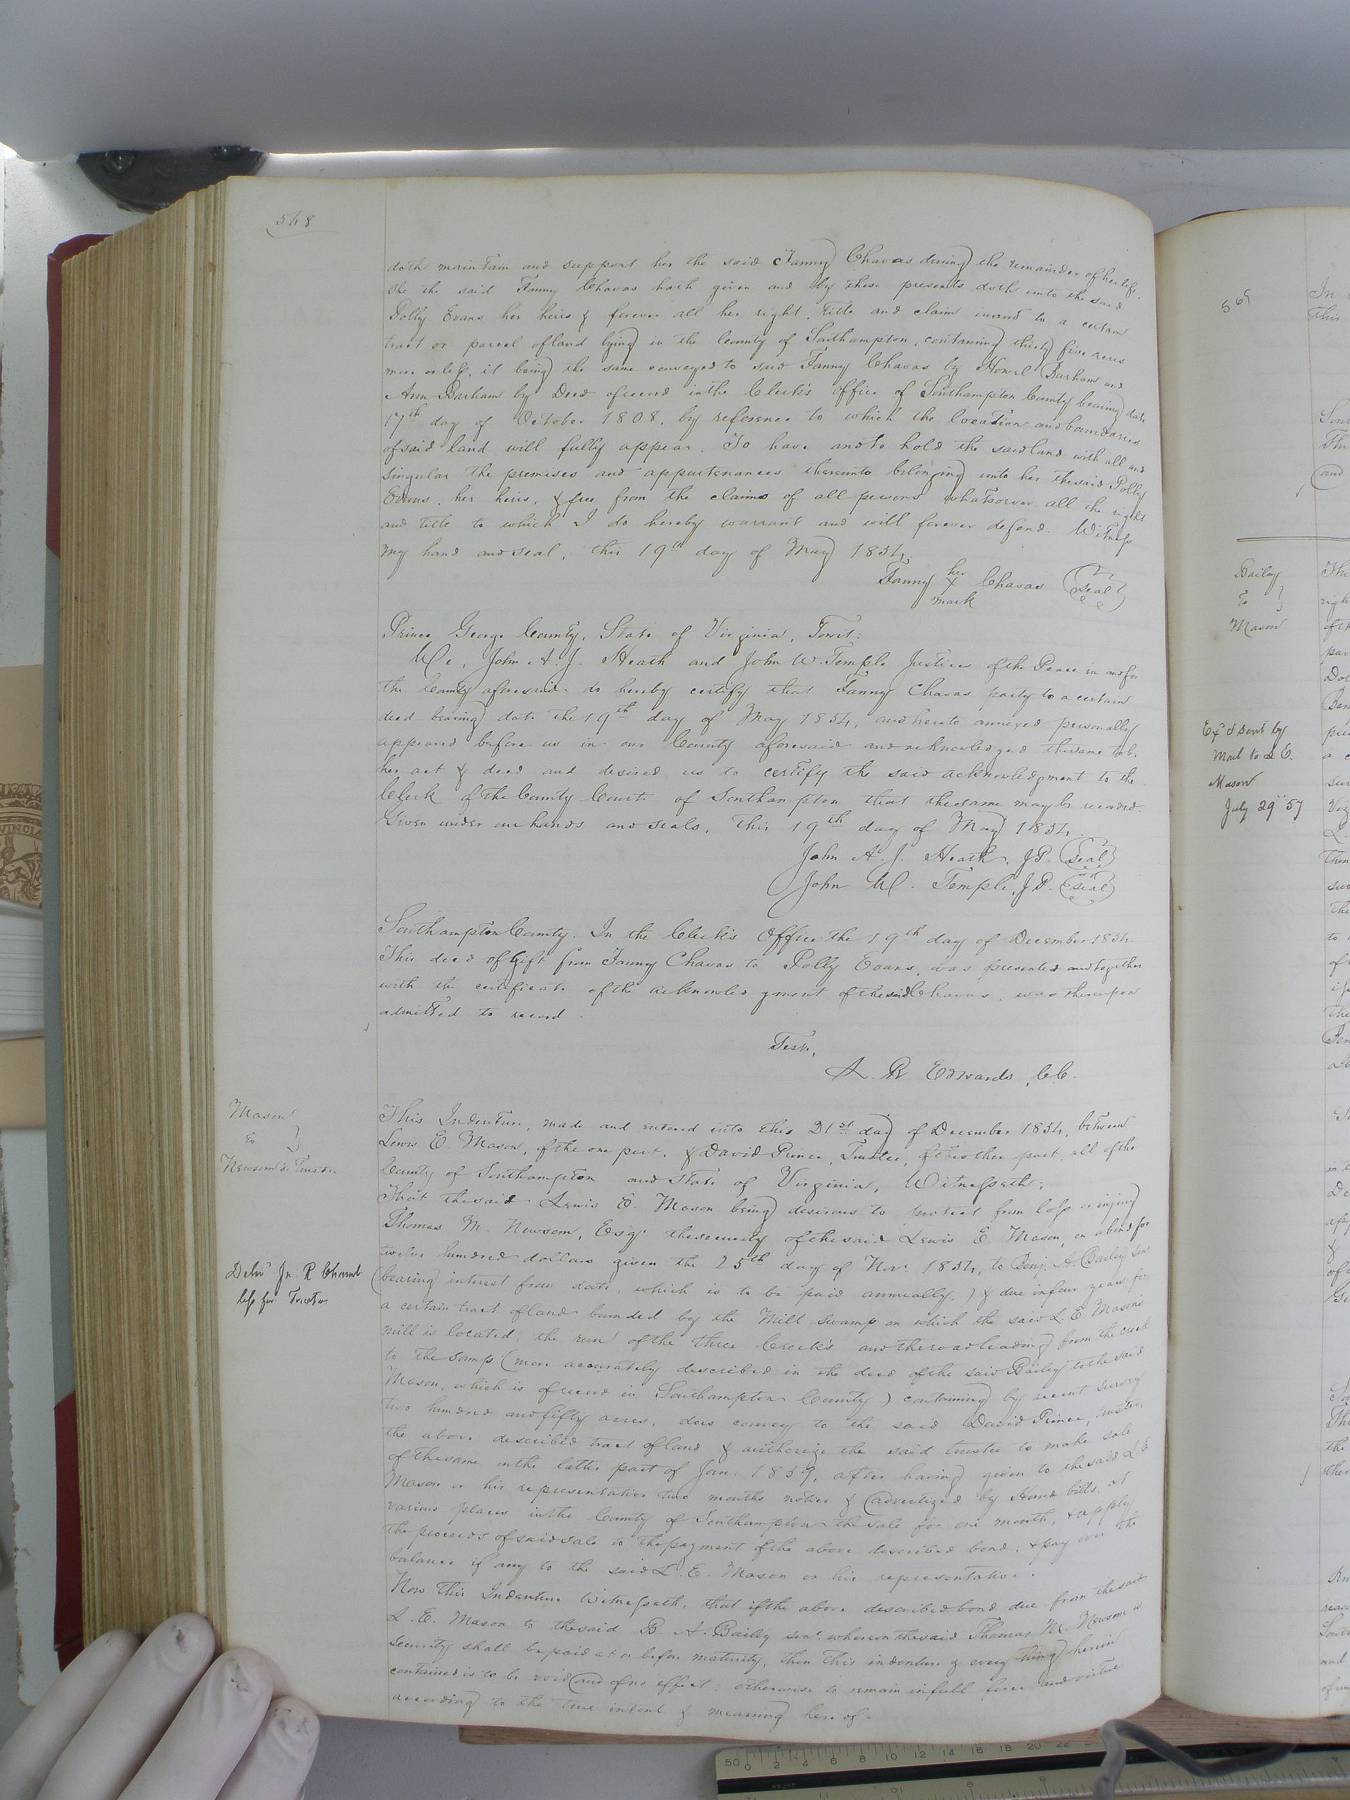 548
doth maintain and support her the said Fanny Chavas during the remainder of her life.
She the said Fanny Chavas hath given and by these presents doth unto the said
Polly Evans her heirs & forever all her right, title and claim in and to a certain
tract or parcel of land lying in the County of Southampton, containing thirty five acres
more or less, it being the same conveyed to said Fanny Chavas by Howel Barham and
Ann Barham by Deed of record in the Clerk's Office of Southampton County bearing date
17th day of October 1808, by reference to which the location and boundaries
of said land will fully appear. To have and to hold the said land with all and
singular the premises and appurtenances thereunto belonging unto her the said Polly
Evans, her heirs, & free from the claims of all persons whatsoever all the right
and title to which I do hereby warrant and will forever defend. Witness
my hand and seal, this 19th day of May 1854.
her
Fanny X Chavas (Seal)
mark
Prince George County, State of Virginia, Towit:
We, John A. J. Heath and John W. Temple Justices of the Peace in and for
the County aforesaid do hereby certify that Fanny Chavas party to a certain
deed bearing date the 19th day of May 1854, and hereto annexed personally
appeared before us in our County aforesaid and acknowledged the same to be
her act & deed and desired us to certify the said acknowledgment to the
Clerk of the County Court of Southampton that the same may be recorded.
Given under our hands and seals, this 19th day of May 1854.
John A. J. Heath, J.P. (Seal)
John W. Temple, J.P. (Seal)
Southampton County. In the Clerk's Office the 19th day of December 1854
This deed of Gift from Fanny Chavas to Polly Evans, was presented and together
with the certificate of the acknowledgment of the said Chavas, was thereupon
admitted to record.
Teste,
L. R. Edwards, C.C.
Mason
to }
Newsom's Trustee.
This Indenture, made and entered into this 21st day of December 1854, between
Lewis E. Mason, of the one part, & David Prince, Trustee, of the other part, all of the
County of Southampton and State of Virginia, Witnesseth:
That the said Lewis E. Mason being desirous to protect from loss or injury
Thomas M. Newsom, Esqr. the security of the said Lewis E. Mason, in a bond for
twelve hundred dollars given the 25th day of Nov. 1854, to Benj. A. Bailey Senr.
Delivd Jn. R. Chamb
less for Trustee
(bearing interest from date, which is to be paid annually,) & due in four years for
a certain tract of land bounded by the Mill Swamp on which the said L. E. Mason's
mill is located, the run of the three Creeks and the road leading from the creek
to the swamp (more accurately described in the deed of the said Bailey to the said
Mason, which is of record in Southampton County) containing by recent survey
two hundred and fifty acres, does convey to the said David Prince, trustee,
the above described tract of land & authorize the said trustee to make sale
of the same in the latter part of Jan. 1859, after having given to the said L. E
Mason or his representative two months notice & advertized by Hand bills, at
various places in the County of Southampton the sale for one month, & apply
the proceeds of said sale to the payment of the above described bond, & pay over the
balance if any to the said L. E. Mason or his representative.
Now this Indenture Witnesseth, that if the above described bond due from the said
L. E. Mason to the said B. A. Bailey senr. whereon the said Thomas M. Newsom is
security shall be paid at or before maturity, then this indenture & every thing herein
contained is to be void and of no effect; otherwise to remain in full force and virtue
according to the true intent & meaning hereof.
569
Bailey
to }
Mason
Exd & sent by
Mail to L. E.
Mason
July 29" 57